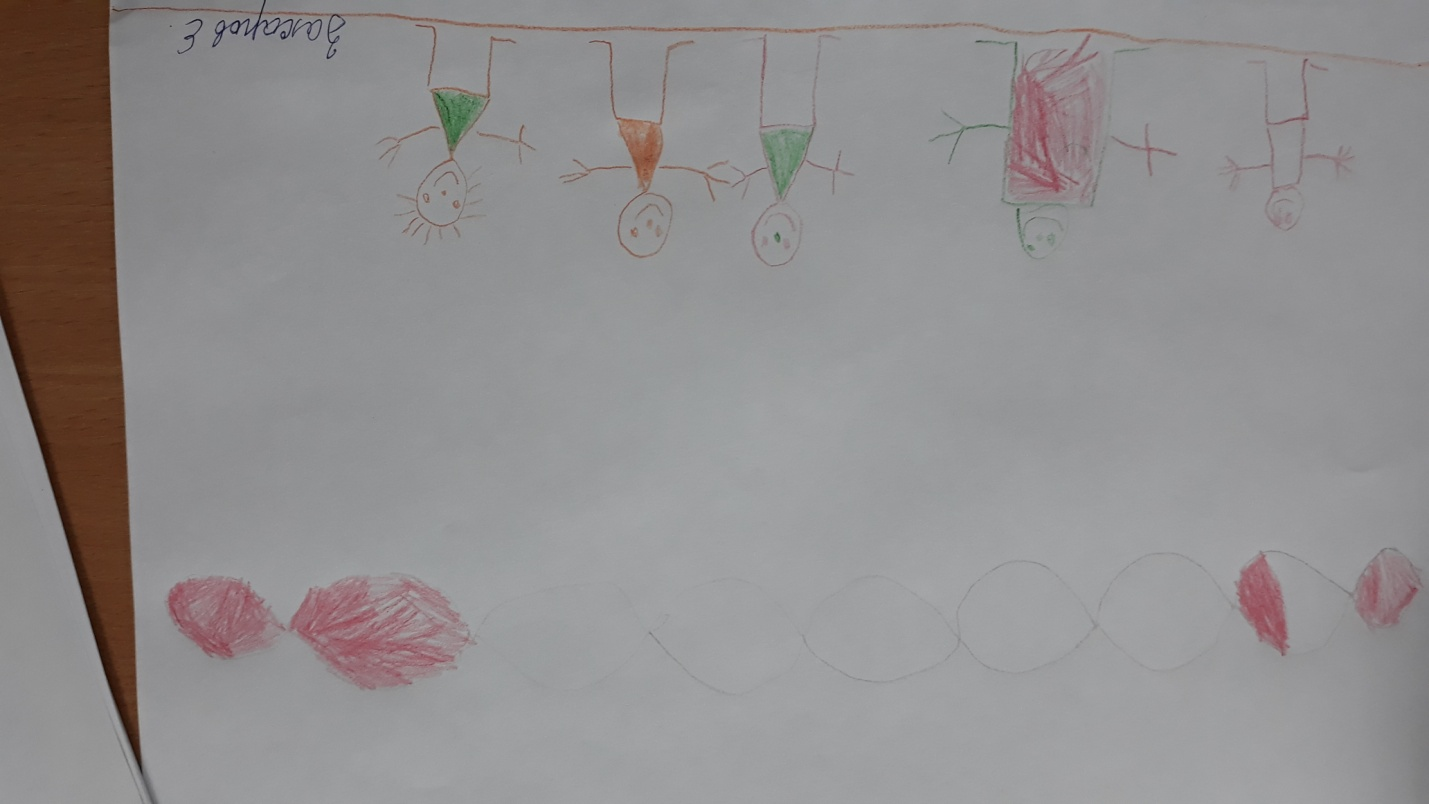 Захаров Е.